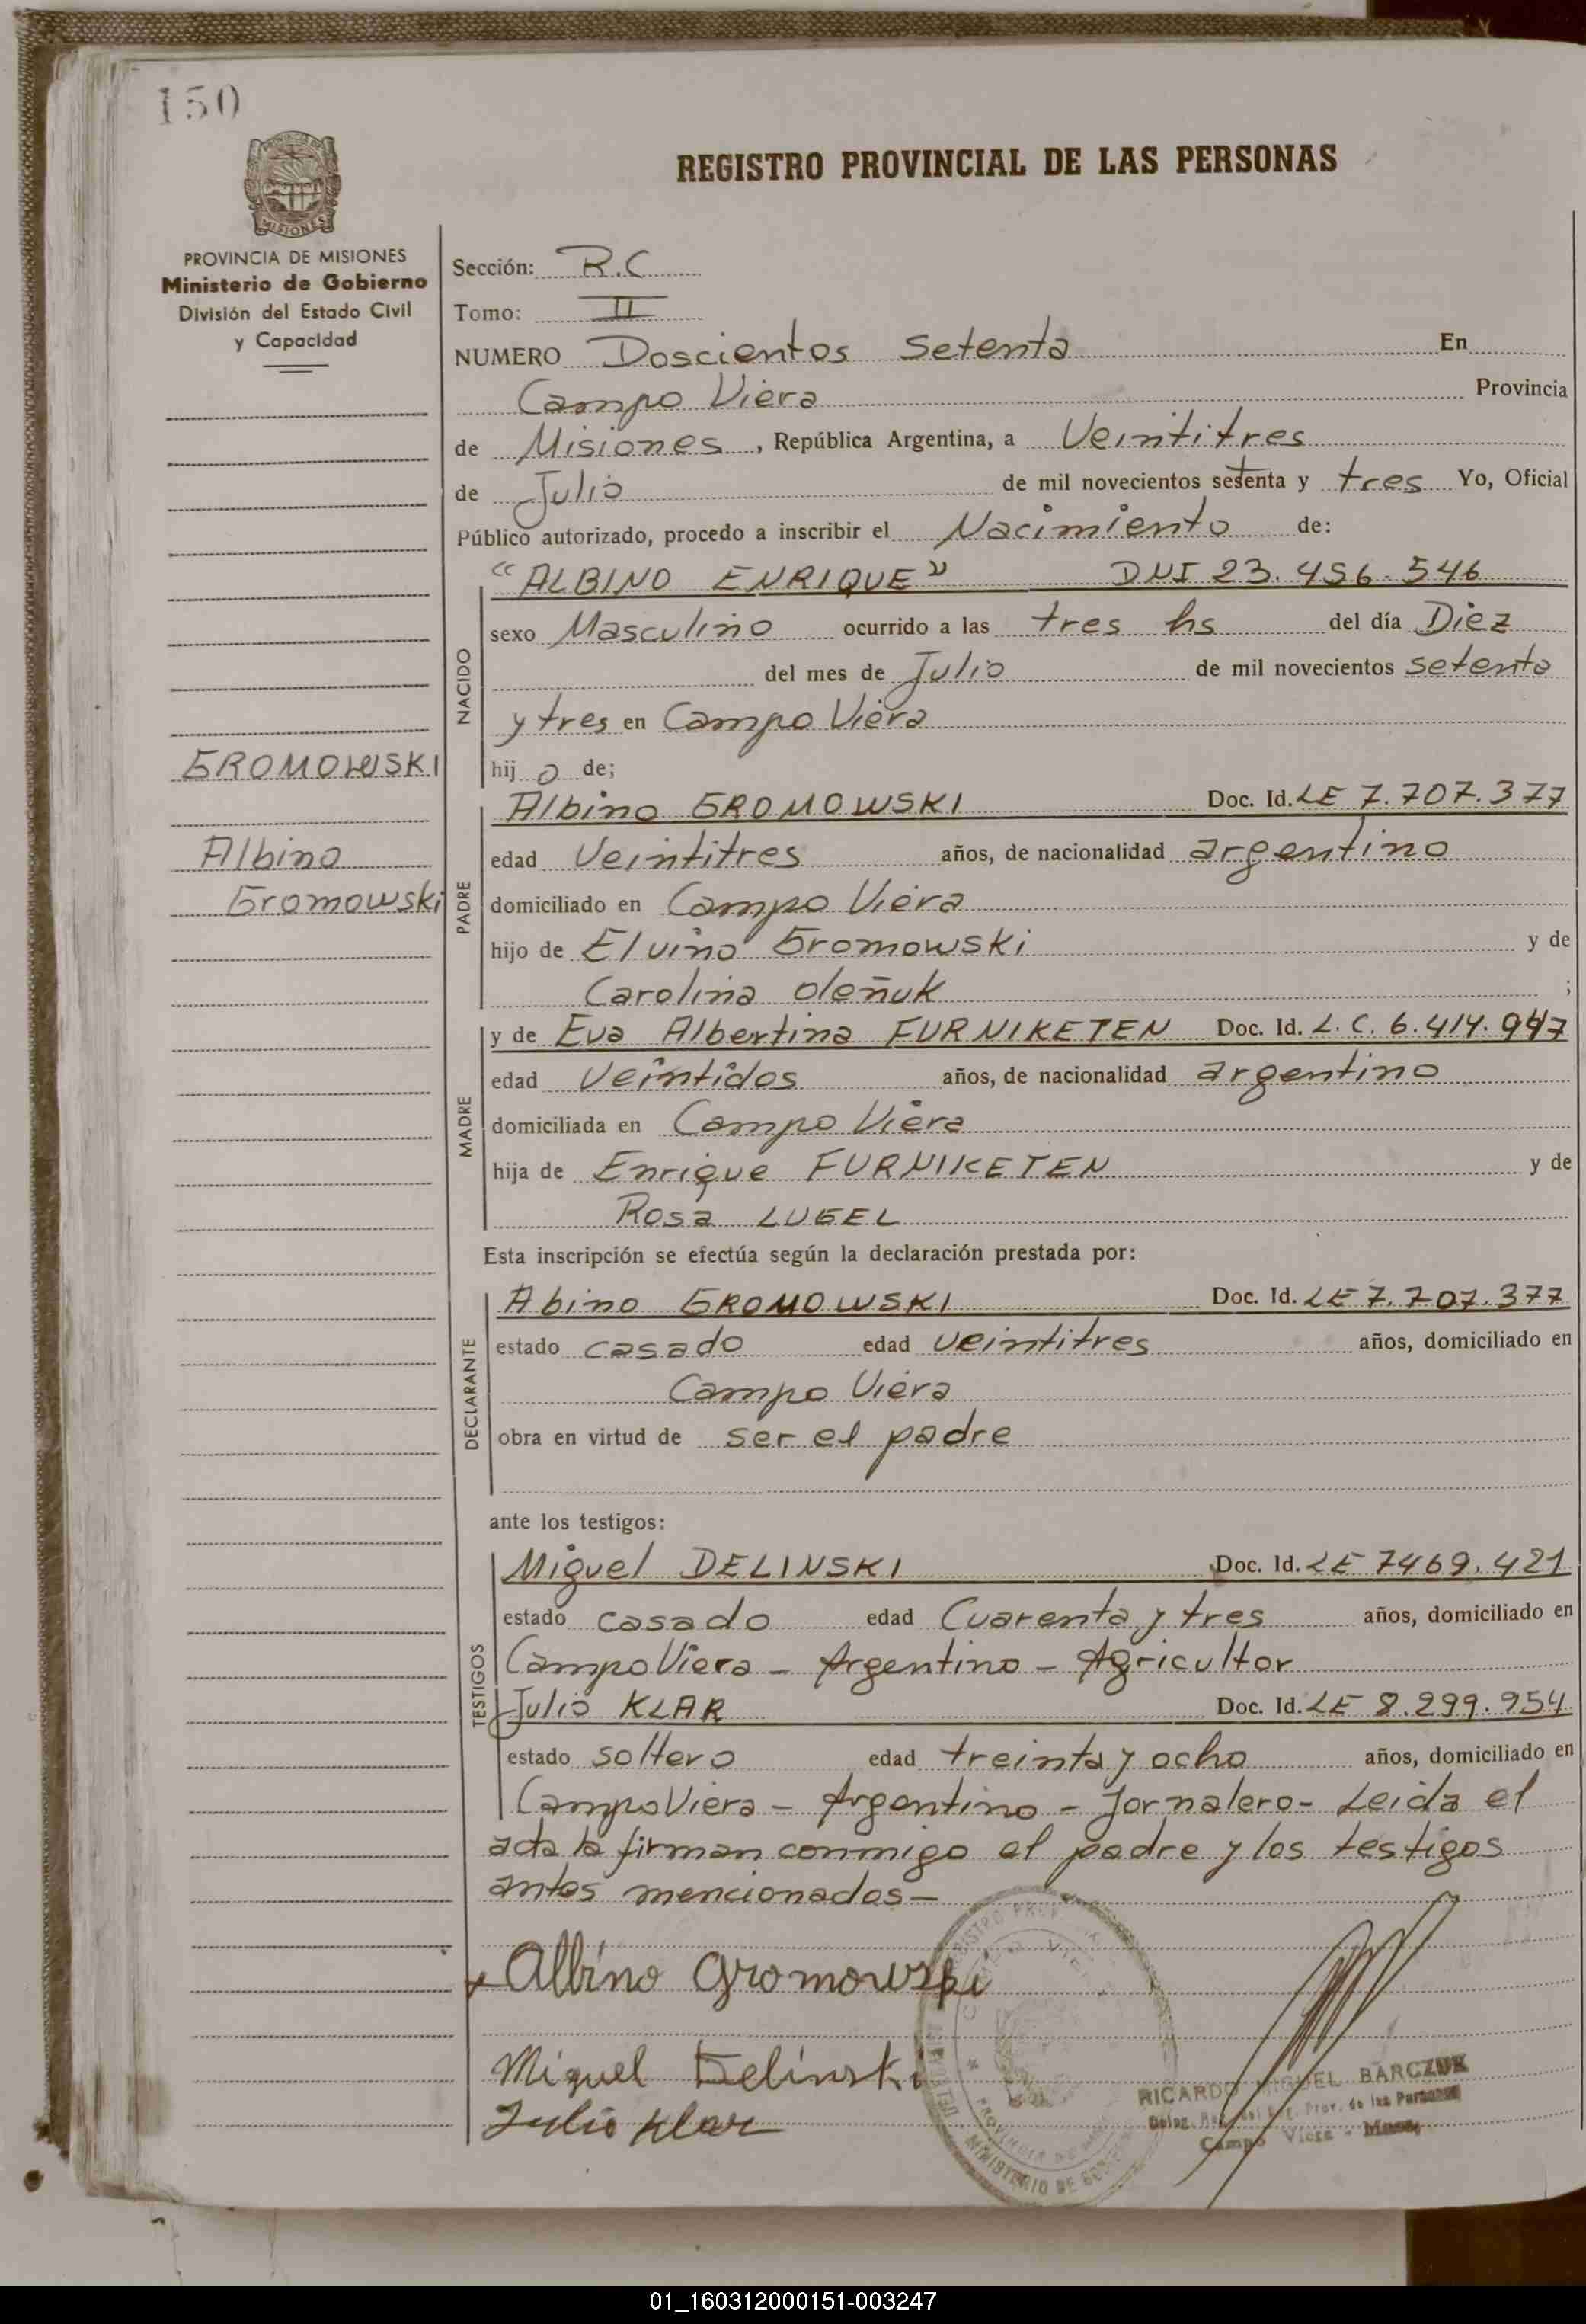 150
REGISTRO PROVINCIAL DE LAS PERSONAS
MISIONES
PROVINCIA DE MISIONES
Ministerio de Gobierno
División del Estado Civil
y Capacidad
Sección: R.C
Tomo: II
NUMERO Doscientos setenta En
Campo Viera Provincia
de Misiones, República Argentina, a Veintitres
de Julio de mil novecientos setenta y tres Yo, Oficial
Público autorizado, procedo a inscribir el Nacimiento de:
NACIDO
"ALBINO ENRIQUE" DNI 23.456.546
sexo Masculino ocurrido a las tres hs del día Diez
del mes de Julio de mil novecientos setenta
y tres en Campo Viera
GROMOWSKI
hij o de;
PADRE
Albino GROMOWSKI Doc. Id. LE 7.707.377
Albino
edad Veintitres años, de nacionalidad argentino
Gromowski
domiciliado en Campo Viera
hijo de Elvino Gromowski y de
Carolina oleñuk ;
MADRE
y de Eva Albertina FURNIKETEN Doc. Id. L.C. 6.414.947
edad Veintidos años, de nacionalidad argentino
domiciliada en Campo Viera
hija de Enrique FURNIKETEN y de
Rosa LUGEL
Esta inscripción se efectúa según la declaración prestada por:
DECLARANTE
Abino GROMOWSKI Doc. Id. LE 7.707.377
estado casado edad veintitres años, domiciliado en
Campo Viera
obra en virtud de ser el padre
ante los testigos:
TESTIGOS
Miguel DELINSKI Doc. Id. LE 7469.421
estado casado edad Cuarenta y tres años, domiciliado en
Campo Viera - Argentino - Agricultor
Julio KLAR Doc. Id. LE 8.299.954
estado soltero edad treinta y ocho años, domiciliado en
Campo Viera - Argentino - Jornalero - Leida el
acta la firman conmigo el padre y los testigos
antes mencionados -
Albino Gromowski
Miguel Delinski
Julio Klar
RICARDO MIGUEL BARCZUK
Prov. de las Personas
Campo Viera
MINISTERIO DE
01_160312000151-003247